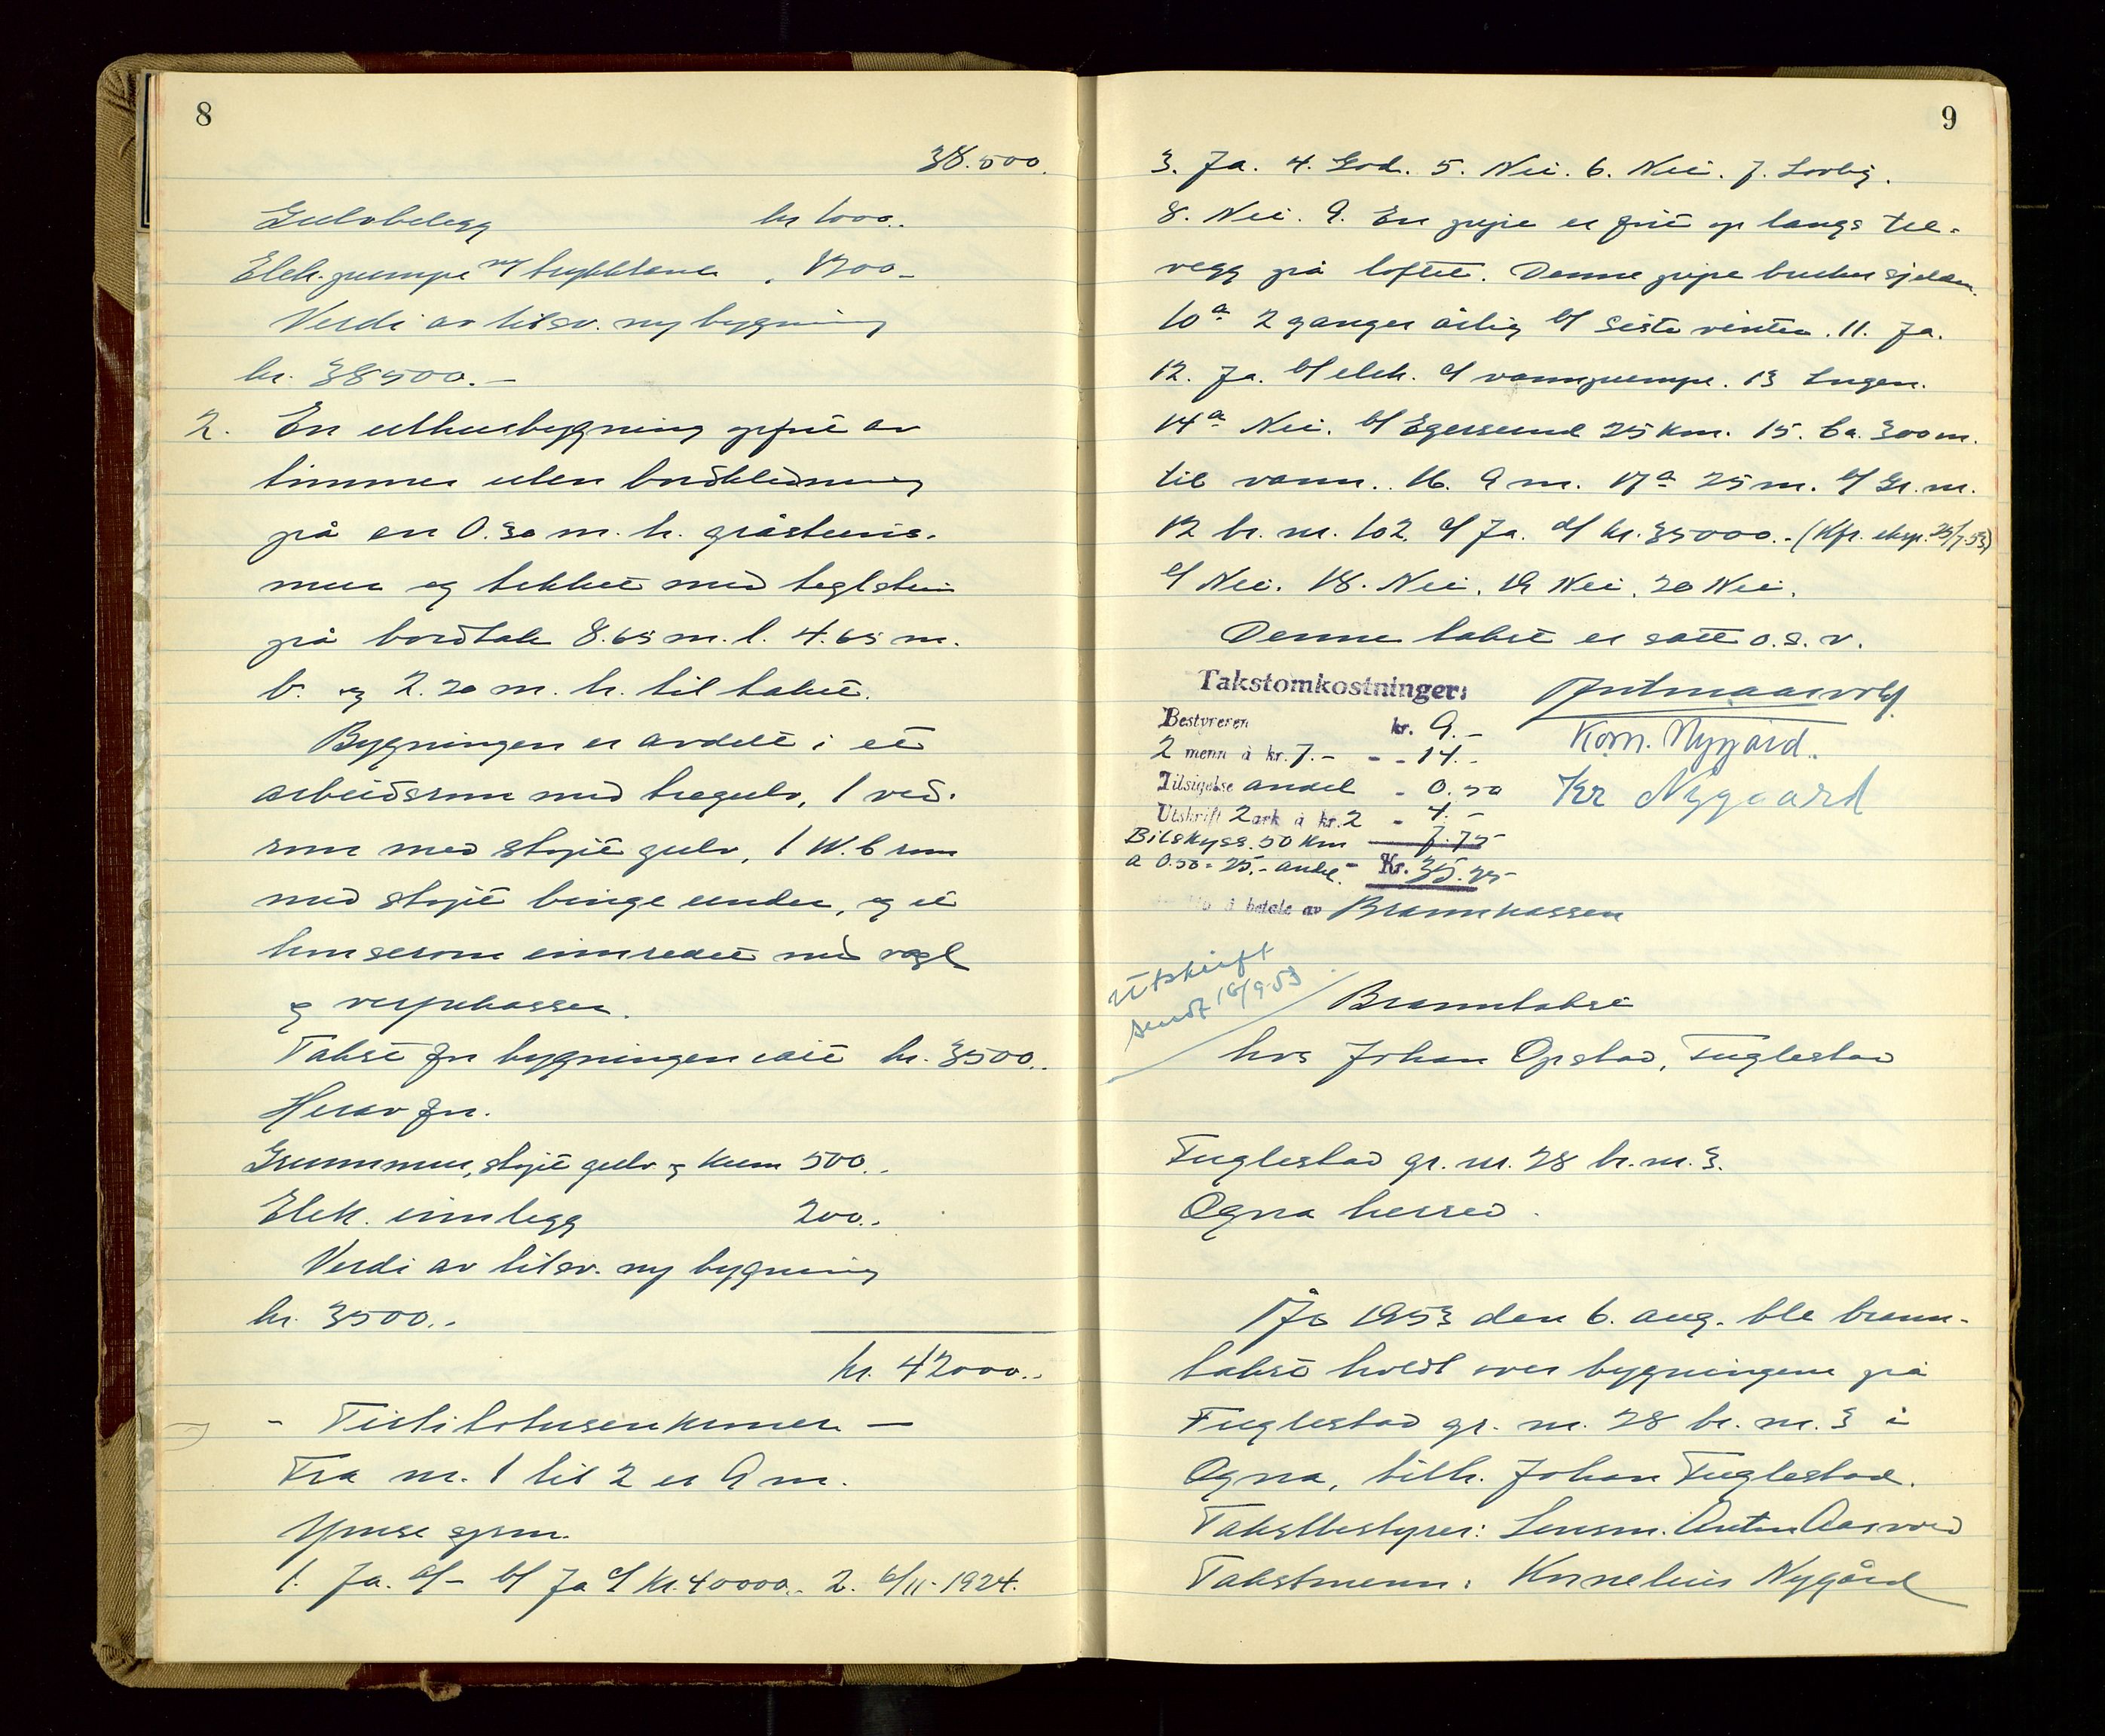 8
38.500.
Gulvbelegg kr 1000.-
Elek. pumpe m/ trykktank " 1200.-
Verdi av tilsv. ny bygning
kr. 38500.-
2. En uthusbygning opført av
tømmer uten bordkledning
på en 0.30 m. h. gråsteins-
mur og tekket med teglstein
på bordtak 8.65 m. l. 4.65 m.
b. og 2.20 m. h. til taket.
Bygningen er avdelt i et
arbeidsrom med tregulv, 1 ved-
rom med støpt gulv, 1 W.C rom
med støpt binge under, og et
hønserom innredet med vagl
og verpekasser.
Takst for bygningen satt kr. 3500.-
Herav for.
Grunnmur, støpt gulv og kum 500.-
Elek. innlegg 200.-
Verdi av tilsv. ny bygning
kr. 3500.-
kr. 42000.-
- Førtitotusenkroner -
Fra nr. 1 til 2 er 9 m.
Ymse spsm.
1. Ja. a/- b/ Ja c/ kr. 40000.- 2. 6/11-1924.
9
3. Ja. 4. God. 5. Nei. 6. Nei. 7. Lovlig.
8. Nei. 9. En pipe er ført op langs tre-
vegg på loftet. Denne pipe brukes sjelden.
10a 2 ganger årlig b/ siste vinter. 11. Ja.
12. Ja. b/ elek. c/ vannpumpe. 13 Ingen.
14a Nei. b/ Egersund 25 km. 15. Ca. 300 m.
til vann. 16. 9 m. 17a 25 m. b/ Gr. nr.
12 br. nr. 102. c/ Ja. d/ kr. 35000.- (Kfr. eksp. 25/7-53)
e/ Nei. 18. Nei. 19 Nei. 20 Nei.
Denne takst er satt o.s.v.
Takstomkostninger:
Bestyreren kr. 9.-
2 menn à kr. 7.- - - 14.-
Tilsigelse andel - 0.50
Utskrift 2 ark à kr. 2 - 4.-
Bilskyss. 50 km 7.75
a 0.50 = 25.- andel - Kr. 35.25
å betale av Brannkassen
Korn. Nygård.
Kr Nygaard
Utskrift
sendt 18/9-53
Branntakst
hos Johan Opstad, Fuglestad
Fuglestad gr. nr. 28 br. nr. 3.
Ogna herred.
År 1953 den 6. aug. ble brann-
takst holdt over bygningene på
Fuglestad gr. nr. 28 br. nr. 3 i
Ogna, tilh. Johan Fuglestad.
Takstbestyrer: Lensm. Anton Aasvold
Takstmenn: Kornelius Nygård